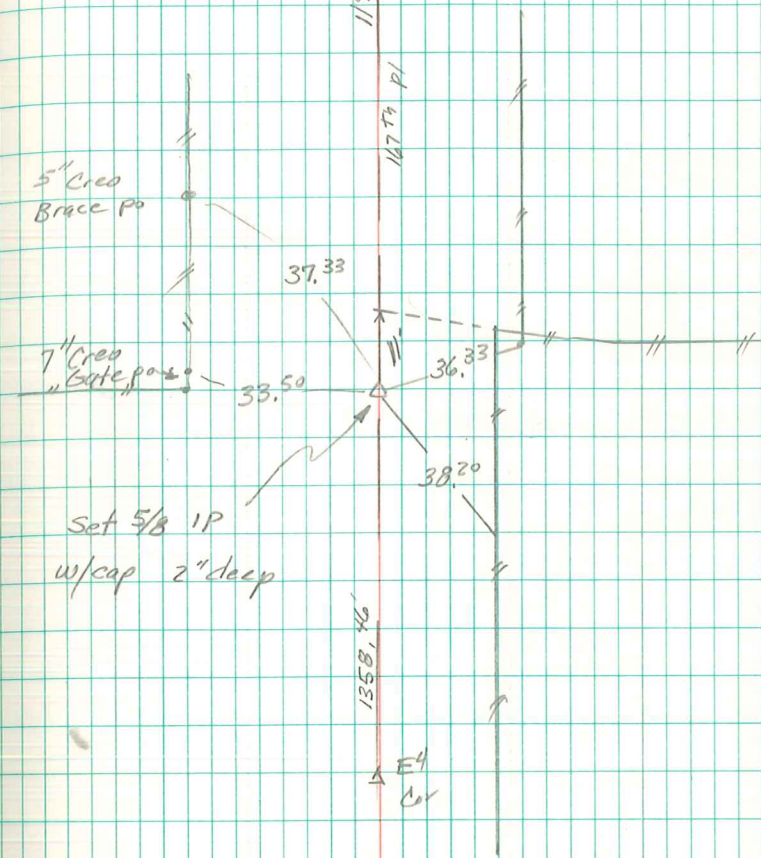 167th pl
5" Creo
Brace po
37.33
11'
36.33
7" Creo
Gate po
33.50
38.20
Set 5/8 IP
w/cap 2" deep
1358.46'
E4
Cor